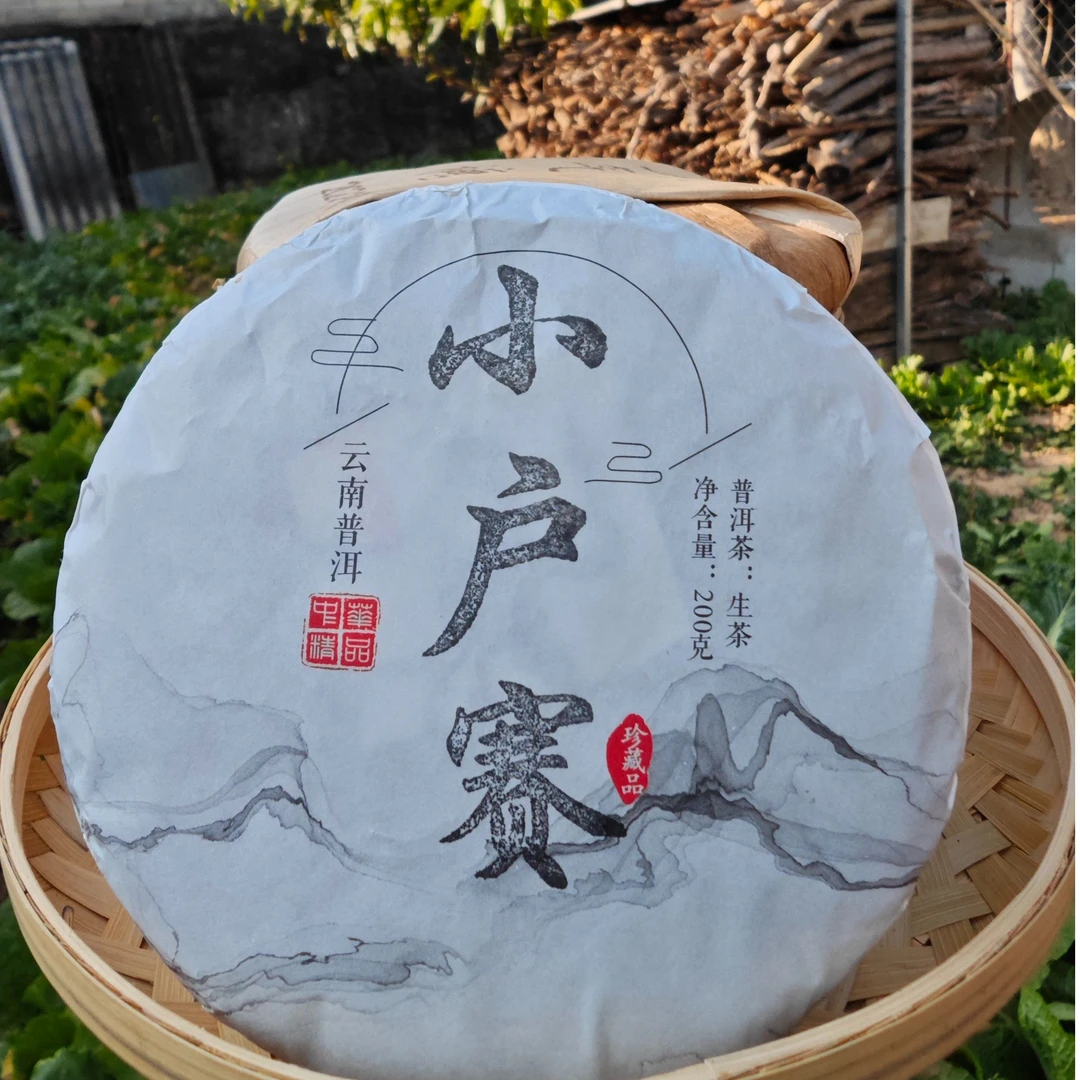 小户赛
云南普洱
中华
精品
普洱茶：生茶
净含量：200克
珍藏品